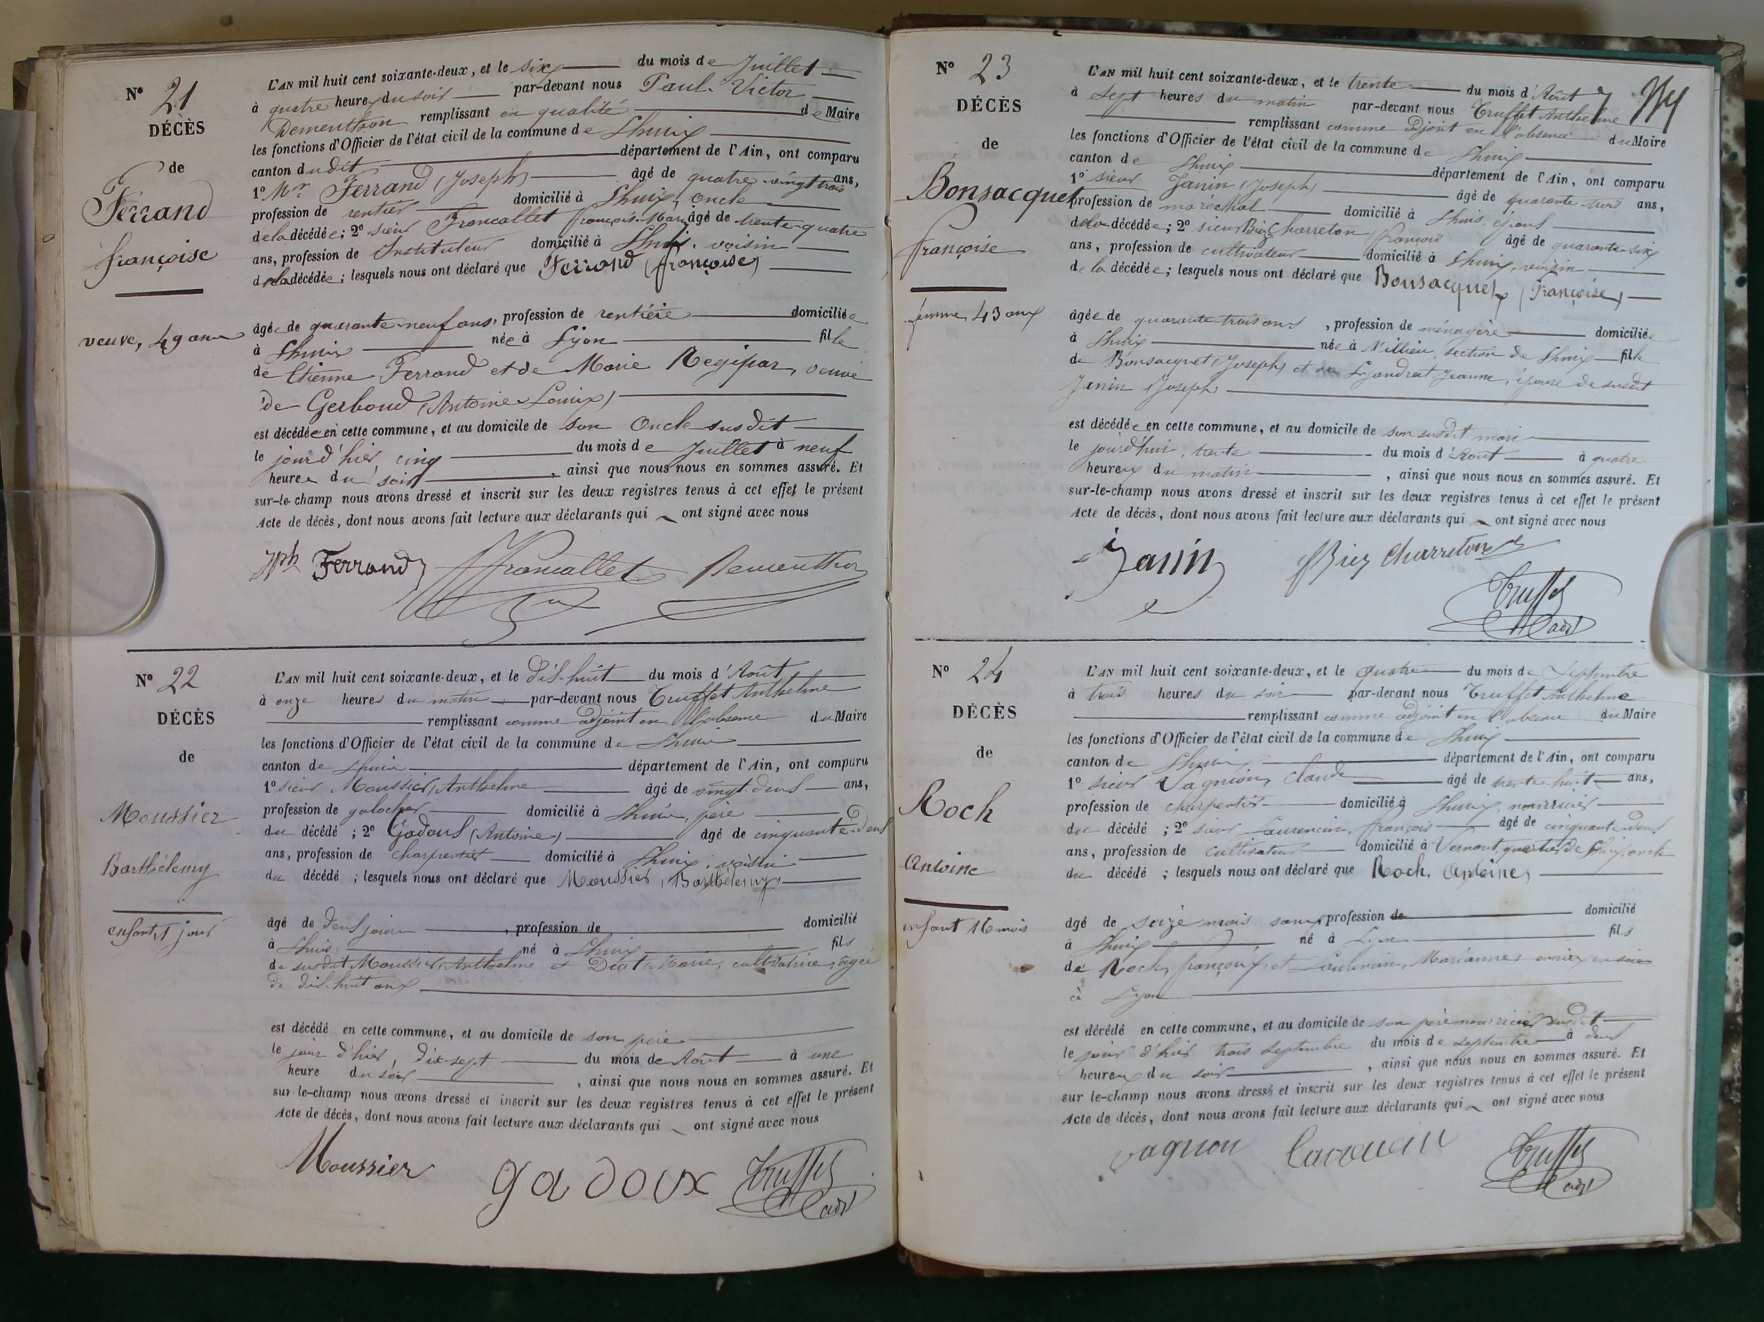 N° 21
DÉCÈS
de
Ferrand
françoise
veuve, 49 ans
L'AN mil huit cent soixante-deux, et le six du mois de Juillet
à quatre heures du soir par-devant nous Paul-Victor
Dementhon remplissant en qualité de Maire
les fonctions d'Officier de l'état civil de la commune de Lhuis
canton dudit département de l'Ain, ont comparu
1° Mr Ferrand (Joseph) âgé de quatre-vingt trois ans,
profession de rentier domicilié à Lhuis, oncle
de la décédée; 2° sieur Francallet françois-Marie âgé de trente-quatre
ans, profession de Instituteur domicilié à Lhuis, voisin
de la décédée; lesquels nous ont déclaré que Ferrand (françoise)
âgée de quarante-neuf ans, profession de rentière domiciliée
à Lhuis née à Lyon fille
de Etienne Ferrand et de Marie veuve
de Gerboud (Antoine Louis)
est décédée en cette commune, et au domicile de son oncle susdit
le jour d'hier, cinq du mois de Juillet à neuf
heures du soir, ainsi que nous nous en sommes assuré. Et
sur-le-champ nous avons dressé et inscrit sur les deux registres tenus à cet effet le présent
Acte de décès, dont nous avons fait lecture aux déclarants qui ont signé avec nous
Jph Ferrand Francallet Dementhon
N° 22
DÉCÈS
de
Moussier
Barthélemy
enfant, 1 jour
L'AN mil huit cent soixante-deux, et le dix-huit du mois d'Août
à onze heures du matin par-devant nous Truffet Anthelme
remplissant comme adjoint en l'absence du Maire
les fonctions d'Officier de l'état civil de la commune de Lhuis
canton de Lhuis département de l'Ain, ont comparu
1° sieur Moussier, Anthelme âgé de vingt deux ans,
profession de galocher domicilié à Lhuis, père
du décédé; 2° Gadoux (Antoine) âgé de cinquante-deux
ans, profession de charpentier domicilié à Lhuis, voisin
du décédé; lesquels nous ont déclaré que Moussier, Barthélemy
âgé de deux jours, profession de domicilié
à Lhuis né à Lhuis fils
de susdit Moussier, Anthelme et Marie, cultivatrice, âgée
de dix-huit ans
est décédé en cette commune, et au domicile de son père
le jour d'hier, dix-sept du mois de Août à une
heure du soir, ainsi que nous nous en sommes assuré. Et
sur le-champ nous avons dressé et inscrit sur les deux registres tenus à cet effet le présent
Acte de décès, dont nous avons fait lecture aux déclarants qui ont signé avec nous
Moussier gadoux Truffet adjt
N° 23
DÉCÈS
de
Bonsacquet
françoise
femme, 43 ans
L'AN mil huit cent soixante-deux, et le trente du mois d'Août
à sept heures du matin par-devant nous Truffet Anthelme
remplissant comme adjoint en l'absence du Maire
les fonctions d'Officier de l'état civil de la commune de Lhuis
canton de Lhuis département de l'Ain, ont comparu
1° sieur Janin (Joseph) âgé de quarante-six ans,
profession de maréchal domicilié à Lhuis, époux
de la décédée; 2° sieur Biez Charreton françois âgé de quarante-six
ans, profession de cultivateur domicilié à Lhuis, voisin
de la décédée; lesquels nous ont déclaré que Bonsacquet (Françoise)
âgée de quarante-trois ans, profession de ménagère domiciliée
à Lhuis née à Millieu, section de Lhuis fille
de Bonsacquet (Joseph) et de Jeanne, épouse de susdit
Janin (Joseph)
est décédée en cette commune, et au domicile de son susdit mari
le jourd'hui, trente du mois d'Août à quatre
heures du matin, ainsi que nous nous en sommes assuré. Et
sur-le-champ nous avons dressé et inscrit sur les deux registres tenus à cet effet le présent
Acte de décès, dont nous avons fait lecture aux déclarants qui ont signé avec nous
Janin Biez Charreton
Truffet adjt
N° 24
DÉCÈS
de
Roch
Antoine
enfant 16 mois
L'AN mil huit cent soixante-deux, et le quatre du mois de Septembre
à trois heures du soir par-devant nous Truffet Anthelme
remplissant comme adjoint en l'absence du Maire
les fonctions d'Officier de l'état civil de la commune de Lhuis
canton de Lhuis département de l'Ain, ont comparu
1° sieur Vagnion, Claude âgé de trente-huit ans,
profession de charpentier domicilié à Lhuis, nourricier
du décédé; 2° sieur Laurencin, françois âgé de cinquante-deux
ans, profession de cultivateur domicilié à
du décédé; lesquels nous ont déclaré que Roch, Antoine,
âgé de seize mois, sans profession de domicilié
à Lhuis né à Lyon fils
de Roch, françois, et Laurencin, Marianne, ouvriers en soie
à Lyon
est décédé en cette commune, et au domicile de son père nourricier susdit
le jour d'hier trois septembre du mois de septembre à deux
heures du soir, ainsi que nous nous en sommes assuré. Et
sur le-champ nous avons dressé et inscrit sur les deux registres tenus à cet effet le présent
Acte de décès, dont nous avons fait lecture aux déclarants qui ont signé avec nous
vagnion Truffet adjt